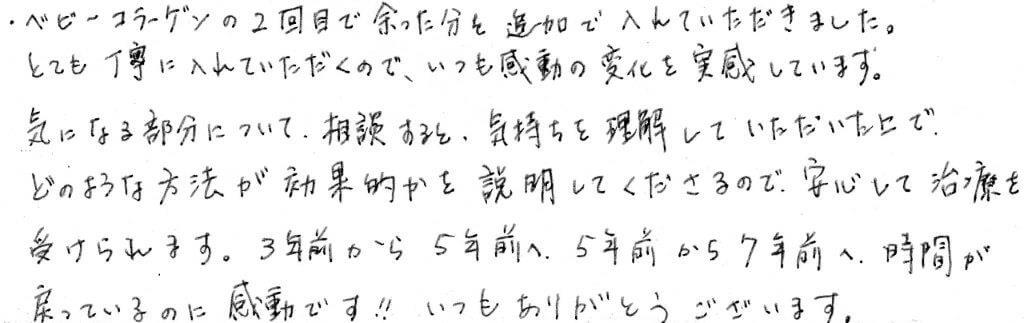 ・ベビーコラーゲンの2回目で余った分を追加で入れていただきました。
とても丁寧に入れていただくので、いつも感動の変化を実感しています。
気になる部分について、相談すると、気持ちを理解していただいた上で、
どのような方法が効果的かを説明してくださるので、安心して治療を
受けられます。3年前から5年前へ、5年前から7年前へ、時間が
戻っているのに感動です!! いつもありがとうございます。